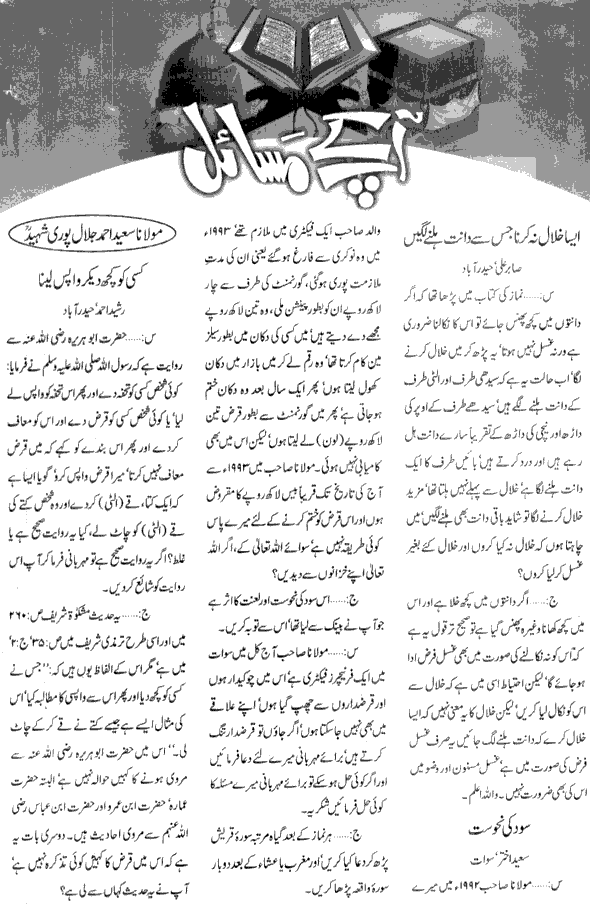 آپ کے مسائل
مولانا سعید احمد جلال پوری شہیدؒ
ایسا خلال نہ کرنا جس سے دانت ہلنے لگیں
صابر علی‘ حیدرآباد
س:...... نماز کی کتاب میں پڑھا تھا کہ اگر
دانتوں میں کچھ پھنس جائے تو اس کا نکالنا ضروری
ہے ورنہ غسل نہیں ہوتا‘ یہ پڑھ کر میں خلال کرنے
لگا‘ اب حالت یہ ہے کہ سیدھی طرف اور الٹی طرف
کے دانت ہلنے لگے ہیں‘ سیدھے طرف کے اوپر کی
داڑھ اور نیچی کی داڑھ کے تقریباً سارے دانت ہل
رہے ہیں اور درد کرتے ہیں‘ بائیں طرف کا ایک
دانت ہلنے لگا ہے‘ خلال سے پہلے نہیں ہلتا تھا‘ مزید
خلال کرنے لگا تو شاید باقی دانت بھی ہلنے لگیں‘ میں
چاہتا ہوں کہ خلال نہ کیا کروں اور خلال کئے بغیر
غسل کر لیا کروں؟
ج:...... اگر دانتوں میں کچھ خلا ہے اور اس
میں کچھ کھانا وغیرہ پھنس گیا ہے تو صحیح تر قول یہ ہے
کہ اُس کو نہ نکالنے کی صورت میں بھی غسل فرض ادا
ہو جائے گا‘ لیکن احتیاط اسی میں ہے کہ خلال سے
اس کو نکال لیا کریں‘ لیکن خلال کا یہ معنی نہیں کہ ایسا
خلال کرے کہ دانت ہلنے لگ جائیں یہ صرف غسل
فرض کی صورت میں ہے‘ غسل مسنون اور وضو میں
اس کی بھی ضرورت نہیں۔ واللہ اعلم۔
سود کی نحوست
سعید اختر‘ سوات
س:...... مولانا صاحب ۱۹۹۲ء میں میرے
والد صاحب ایک فیکٹری میں ملازم تھے‘ ۱۹۹۳ء
میں وہ نوکری سے فارغ ہو گئے یعنی ان کی مدت
ملازمت پوری ہو گئی‘ گورنمنٹ کی طرف سے چار
لاکھ روپے ان کو بطور پینشن ملی‘ وہ تین لاکھ روپے
مجھے دے دیتے ہیں‘ میں کسی کی دکان میں بطور سیلز
مین کام کرتا تھا‘ وہ رقم لے کر میں بازار میں دکان
کھول لیتا ہوں‘ پھر ایک سال بعد وہ دکان ختم
ہو جاتی ہے‘ پھر میں گورنمنٹ سے بطور قرض تین
لاکھ روپے (لون) لے لیتا ہوں‘ لیکن اس میں بھی
کامیابی نہیں ہوئی۔ مولانا صاحب میں ۱۹۹۳ء سے
آج کی تاریخ تک قریباً بیس لاکھ روپے کا مقروض
ہوں اور اس قرض کو ختم کرنے کے لئے میرے پاس
کوئی طریقہ نہیں ہے‘ سوائے اللہ تعالیٰ کے‘ اگر اللہ
تعالیٰ اپنے خزانوں سے دیدیں؟
ج:...... اس سود کی نحوست اور لعنت کا اثر ہے
جو آپ نے بینک سے لیا تھا‘ اس سے توبہ کریں۔
س:...... مولانا صاحب آج کل میں سوات
میں ایک فرنیچرز فیکٹری ہے‘ اس میں چوکیدار ہوں
اور قرضداروں سے چھپ گیا ہوں‘ اپنے علاقے
میں بھی نہیں جا سکتا ہوں‘ اگر جاؤں تو قرضدار تنگ
کرتے ہیں‘ برائے مہربانی میرے لئے دعا فرمائیں
اور اگر کوئی حل ہو سکے تو برائے مہربانی میرے مسئلہ کا
کوئی حل فرمائیں شکریہ۔
ج:...... ہر نماز کے بعد گیارہ مرتبہ سورۂ قریش
پڑھ کر دعا کیا کریں‘ اور مغرب یا عشاء کے بعد دوبار
سورۂ واقعہ پڑھا کریں۔
کسی کو کچھ دیکر واپس لینا
رشید احمد‘ حیدرآباد
س:...... حضرت ابوہریرہ رضی اللہ عنہ سے
روایت ہے کہ رسول اللہ صلی اللہ علیہ وسلم نے فرمایا:
کوئی شخص کسی کو تحفہ دے اور پھر اس تحفہ کو واپس لے
لیا‘ یا کوئی شخص کسی کو قرض دے اور اس کو معاف
کر دے اور پھر اس بندے کو کہے کہ میں قرض
معاف نہیں کرتا‘ میرا قرض واپس کرو‘ گویا ایسا ہے
کہ ایک کتا‘ قے (الٹی) کر دے اور وہ شخص کتے کی
قے (الٹی) کو چاٹ لے‘ کیا یہ روایت صحیح ہے یا
غلط؟ اگر یہ روایت صحیح ہے تو مہربانی فرما کر آپ اس
روایت کو شائع کر دیں۔
ج:...... یہ حدیث مشکوٰۃ شریف ص: ۲۶۰
میں اور اسی طرح ترمذی شریف میں ص: ۳۵‘ ج:۲‘
میں ہے‘ مگر اس کے الفاظ یوں ہیں کہ: ”جس نے
کسی کو کچھ دیا اور پھر اس سے واپسی کا مطالبہ کیا‘ اس
کی مثال ایسے ہے جیسے کتے نے قے کر کے چاٹ
لی۔“ اس میں حضرت ابوہریرہ رضی اللہ عنہ سے
مروی ہونے کا کہیں حوالہ نہیں ہے‘ البتہ حضرت
عمارہ‘ حضرت ابن عمرو اور حضرت ابن عباس رضی
اللہ عنہم سے مروی احادیث ہیں۔ دوسری بات یہ
ہے کہ اس میں قرض کا کہیں کوئی تذکرہ نہیں ہے‘
آپ نے یہ حدیث کہاں سے لی ہے؟